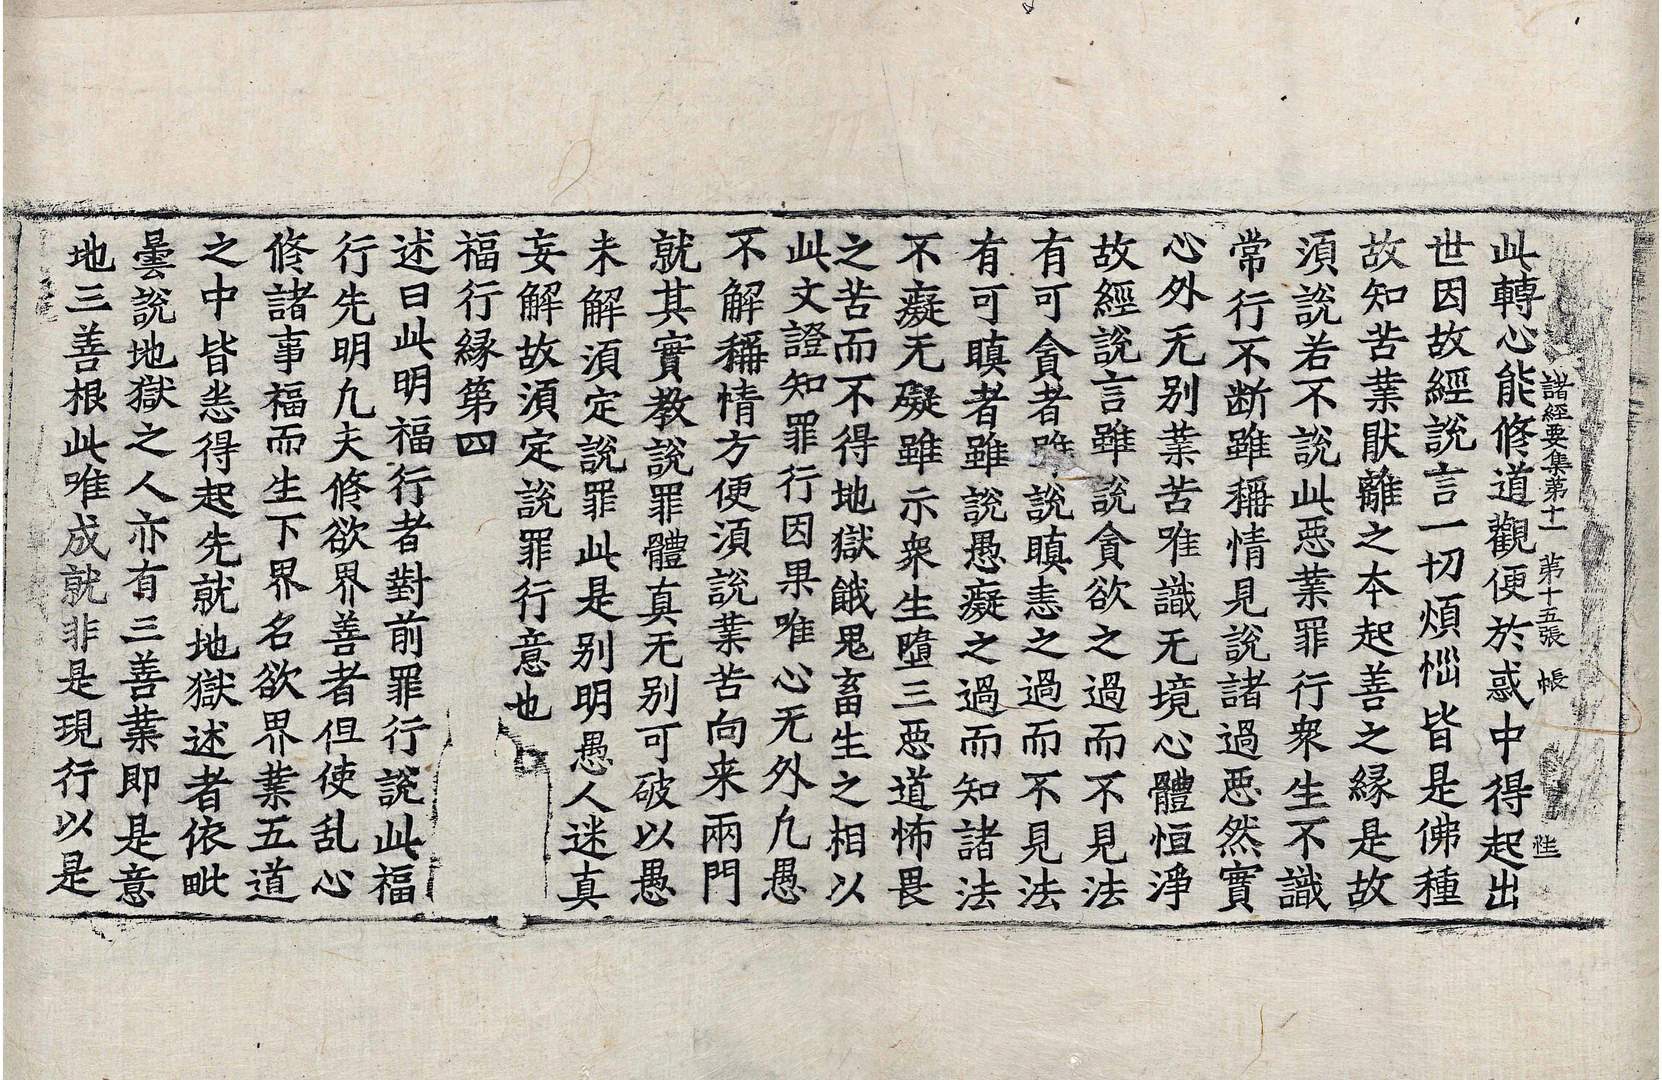 諸經要集第十一 第十五張 帳
此轉心能修道觀便於惑中得起出
世因故經說言一切煩惱皆是佛種
故知苦業猒離之本起善之縁是故
湏說若不說此惡業罪行衆生不識
常行不断雖稱情見說諸過惡然實
心外无别業苦唯識无境心體恒淨
故經說言雖說貪欲之過而不見法
有可貪者雖說瞋恚之過而不見法
有可瞋者雖說愚癡之過而知諸法
不癡无礙雖示衆生墮三惡道怖畏
之苦而不得地獄餓鬼畜生之相以
此文證知罪行因果唯心无外凢愚
不解稱情方便湏說業苦向来兩門
就其實教說罪體真无别可破以愚
未解湏定說罪此是别明愚人迷真
妄解故湏定說罪行意也
福行縁第四
述曰此明福行者對前罪行說此福
行先明凢夫修欲界善者但使乱心
修諸事福而生下界名欲界業五道
之中皆恙得起先就地獄述者依毗
曇說地獄之人亦有三善業即是意
地三善根此唯成就非是現行以是